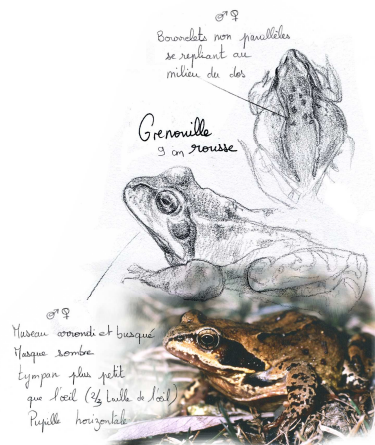 ♂ ♀
Bourrelets non parallèles
se repliant au
milieu du dos
Grenouille
9 cm rousse
♂ ♀
Museau arrondi et busqué
Masque sombre
tympan plus petit
que l'œil (2/3 taille de l'œil)
Pupille horizontale